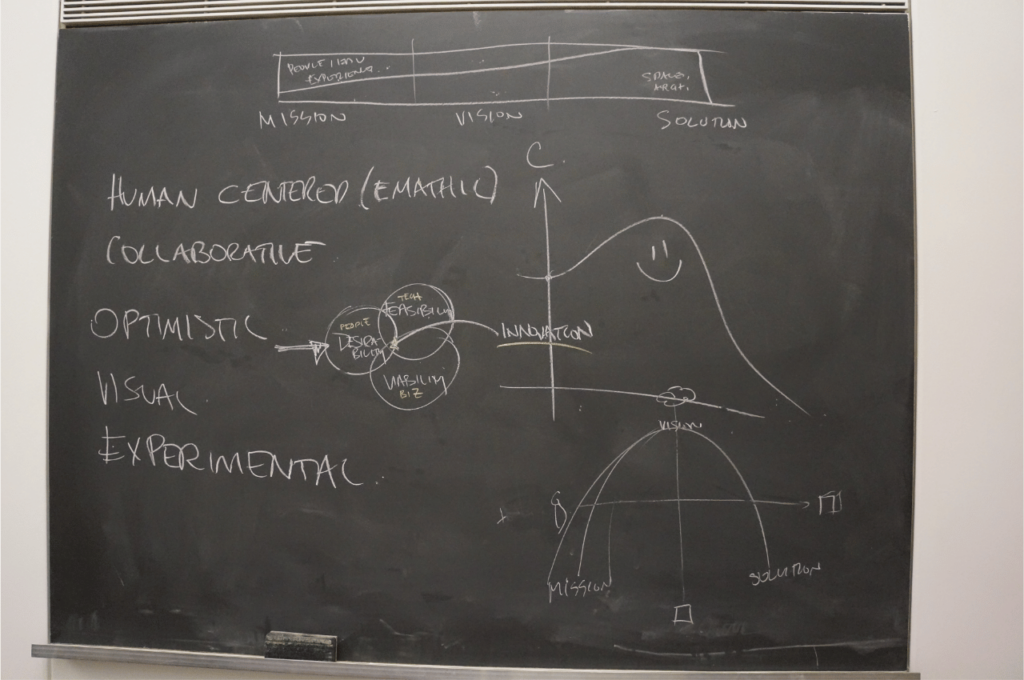 PEOPLE
EXPERIENCE...
SPACE,
ARCH.
MISSION
VISION
SOLUTION
C.
HUMAN CENTERED (EMATHIC)
COLLABORATIVE
OPTIMISTIC
VISUAL
EXPERIMENTAL
TECH
FEASIBILITY
PEOPLE
DESIRA-
BILITY
VIABILITY
BIZ
INNOVATION
VISION
MISSION
SOLUTION